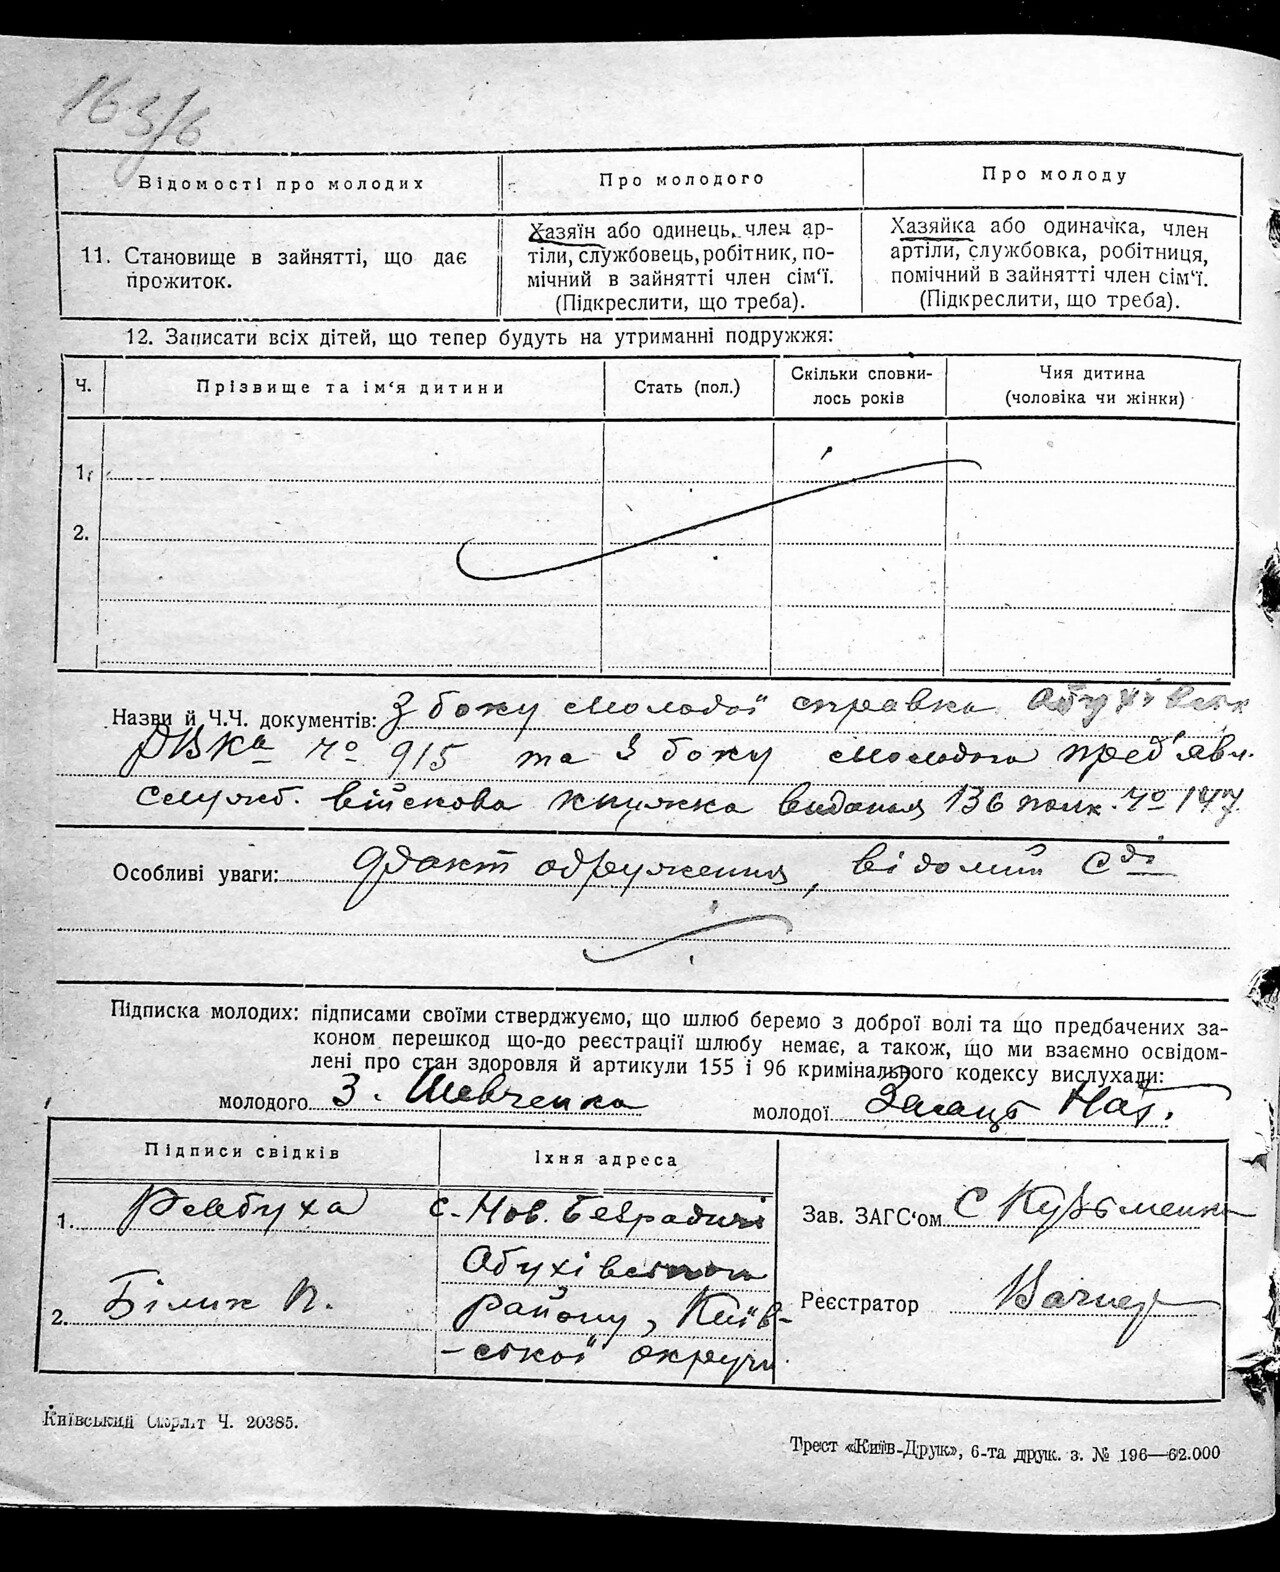 163/6
Відомості про молодих
Про молодого
Про молоду
11. Становище в зайнятті, що дає
прожиток.
Хазяїн або одинець, член ар-
тіли, службовець, робітник, по-
мічний в зайнятті член сім'ї.
(Підкреслити, що треба).
Хазяйка або одиначка, член
артіли, службовка, робітниця,
помічний в зайнятті член сім'ї.
(Підкреслити, що треба).
12. Записати всіх дітей, що тепер будуть на утриманні подружжя:
Ч.
Прізвище та ім'я дитини
Стать (пол.)
Скільки сповни-
лось років
Чия дитина
(чоловіка чи жінки)
1.
2.
Назви й Ч.Ч. документів: З боку молодої справка
РВКа № 915 та з боку молодого пред'явл.
служб. військова книжка видання 136 полк. № 147
Особливі уваги: Факт одруження, відомий
Підписка молодих: підписами своїми стверджуємо, що шлюб беремо з доброї волі та що предбачених за-
коном перешкод що-до реєстрації шлюбу немає, а також, що ми взаємно освідом-
лені про стан здоровля й артикули 155 і 96 кримінального кодексу вислухали:
молодого З. Шевченко молодої Заяць Нат.
Підписи свідків
Їхня адреса
1. Рембуха
с. Нов. Безрадичі
Обухівського
2. Білик П.
району, Київ-
-ської округи.
Зав. ЗАГС'ом С Кузьменко
Реєстратор
Київський Окрліт Ч. 20385.
Трест «Київ-Друк», 6-та друк. з. № 196—62.000